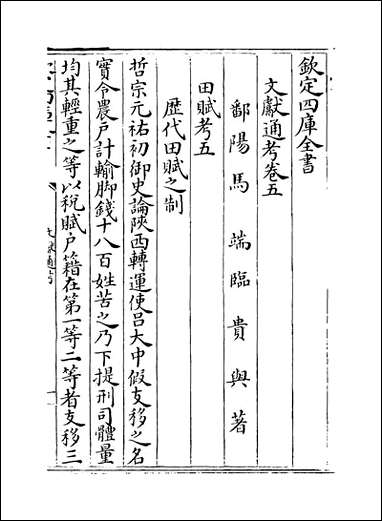 欽定四庫全書
文獻通考卷五
鄱陽馬端臨貴與著
田賦考五
歴代田賦之制
哲宗元祐初御史論陜西轉運使吕大中假支移之名
實令農户計輸脚錢十八百姓苦之乃下提刑司體量
均其輕重之等以税賦户籍在第一等二等者支移三
文獻通考